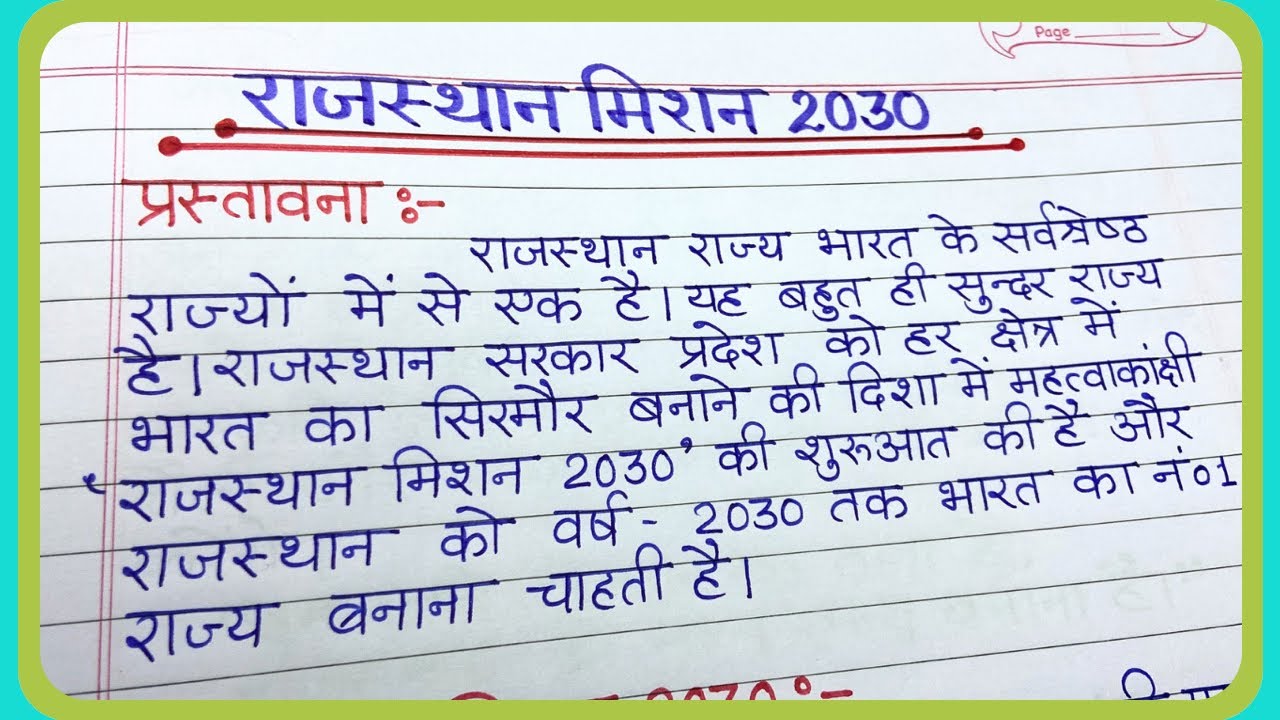 Page
राजस्थान मिशन 2030
प्रस्तावना :-
राजस्थान राज्य भारत के सर्वश्रेष्ठ
राज्यों में से एक है। यह बहुत ही सुन्दर राज्य
है। राजस्थान सरकार प्रदेश को हर क्षेत्र में
भारत का सिरमौर बनाने की दिशा में महत्वाकांक्षी
'राजस्थान मिशन 2030' की शुरुआत की है और
राजस्थान को वर्ष - 2030 तक भारत का नं०1
राज्य बनाना चाहती है।